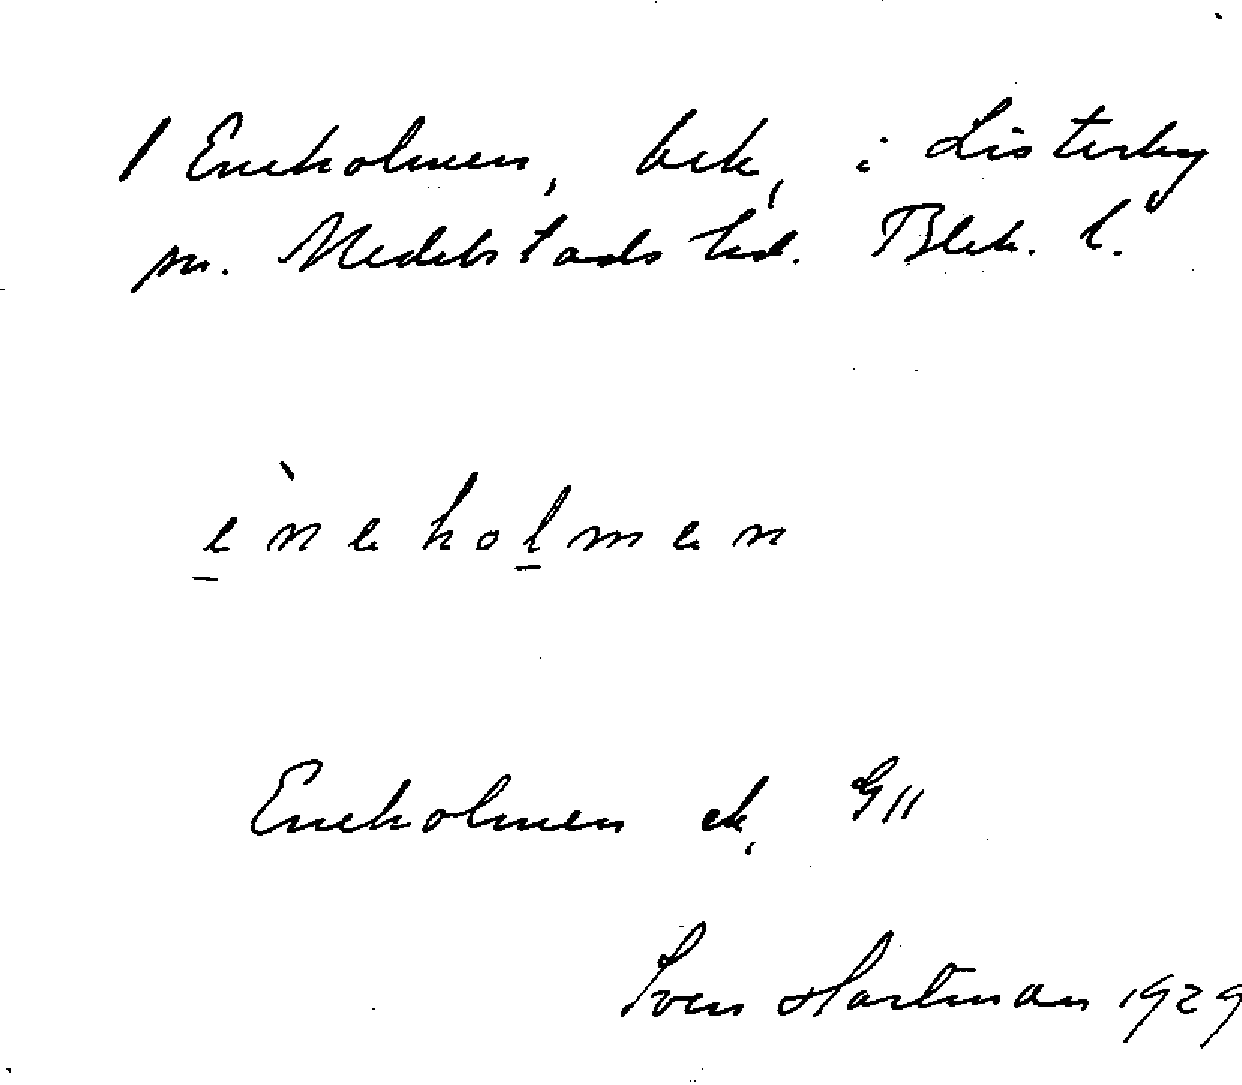 / Eneholmen, bek, i Listerby
sn. Medelstads hd. Blek. l.
èneholmen
Eneholmen ek, G11
Sven Hartman 1929